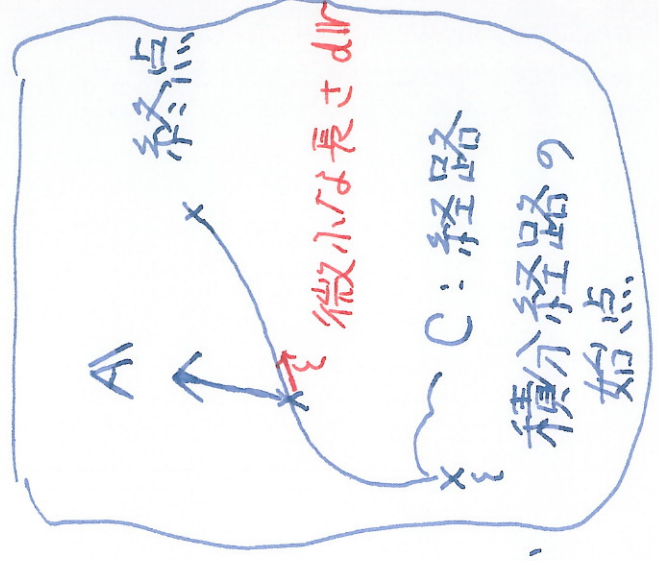 終点
A
微小な長さ dr
C:経路
積分経路の
始点